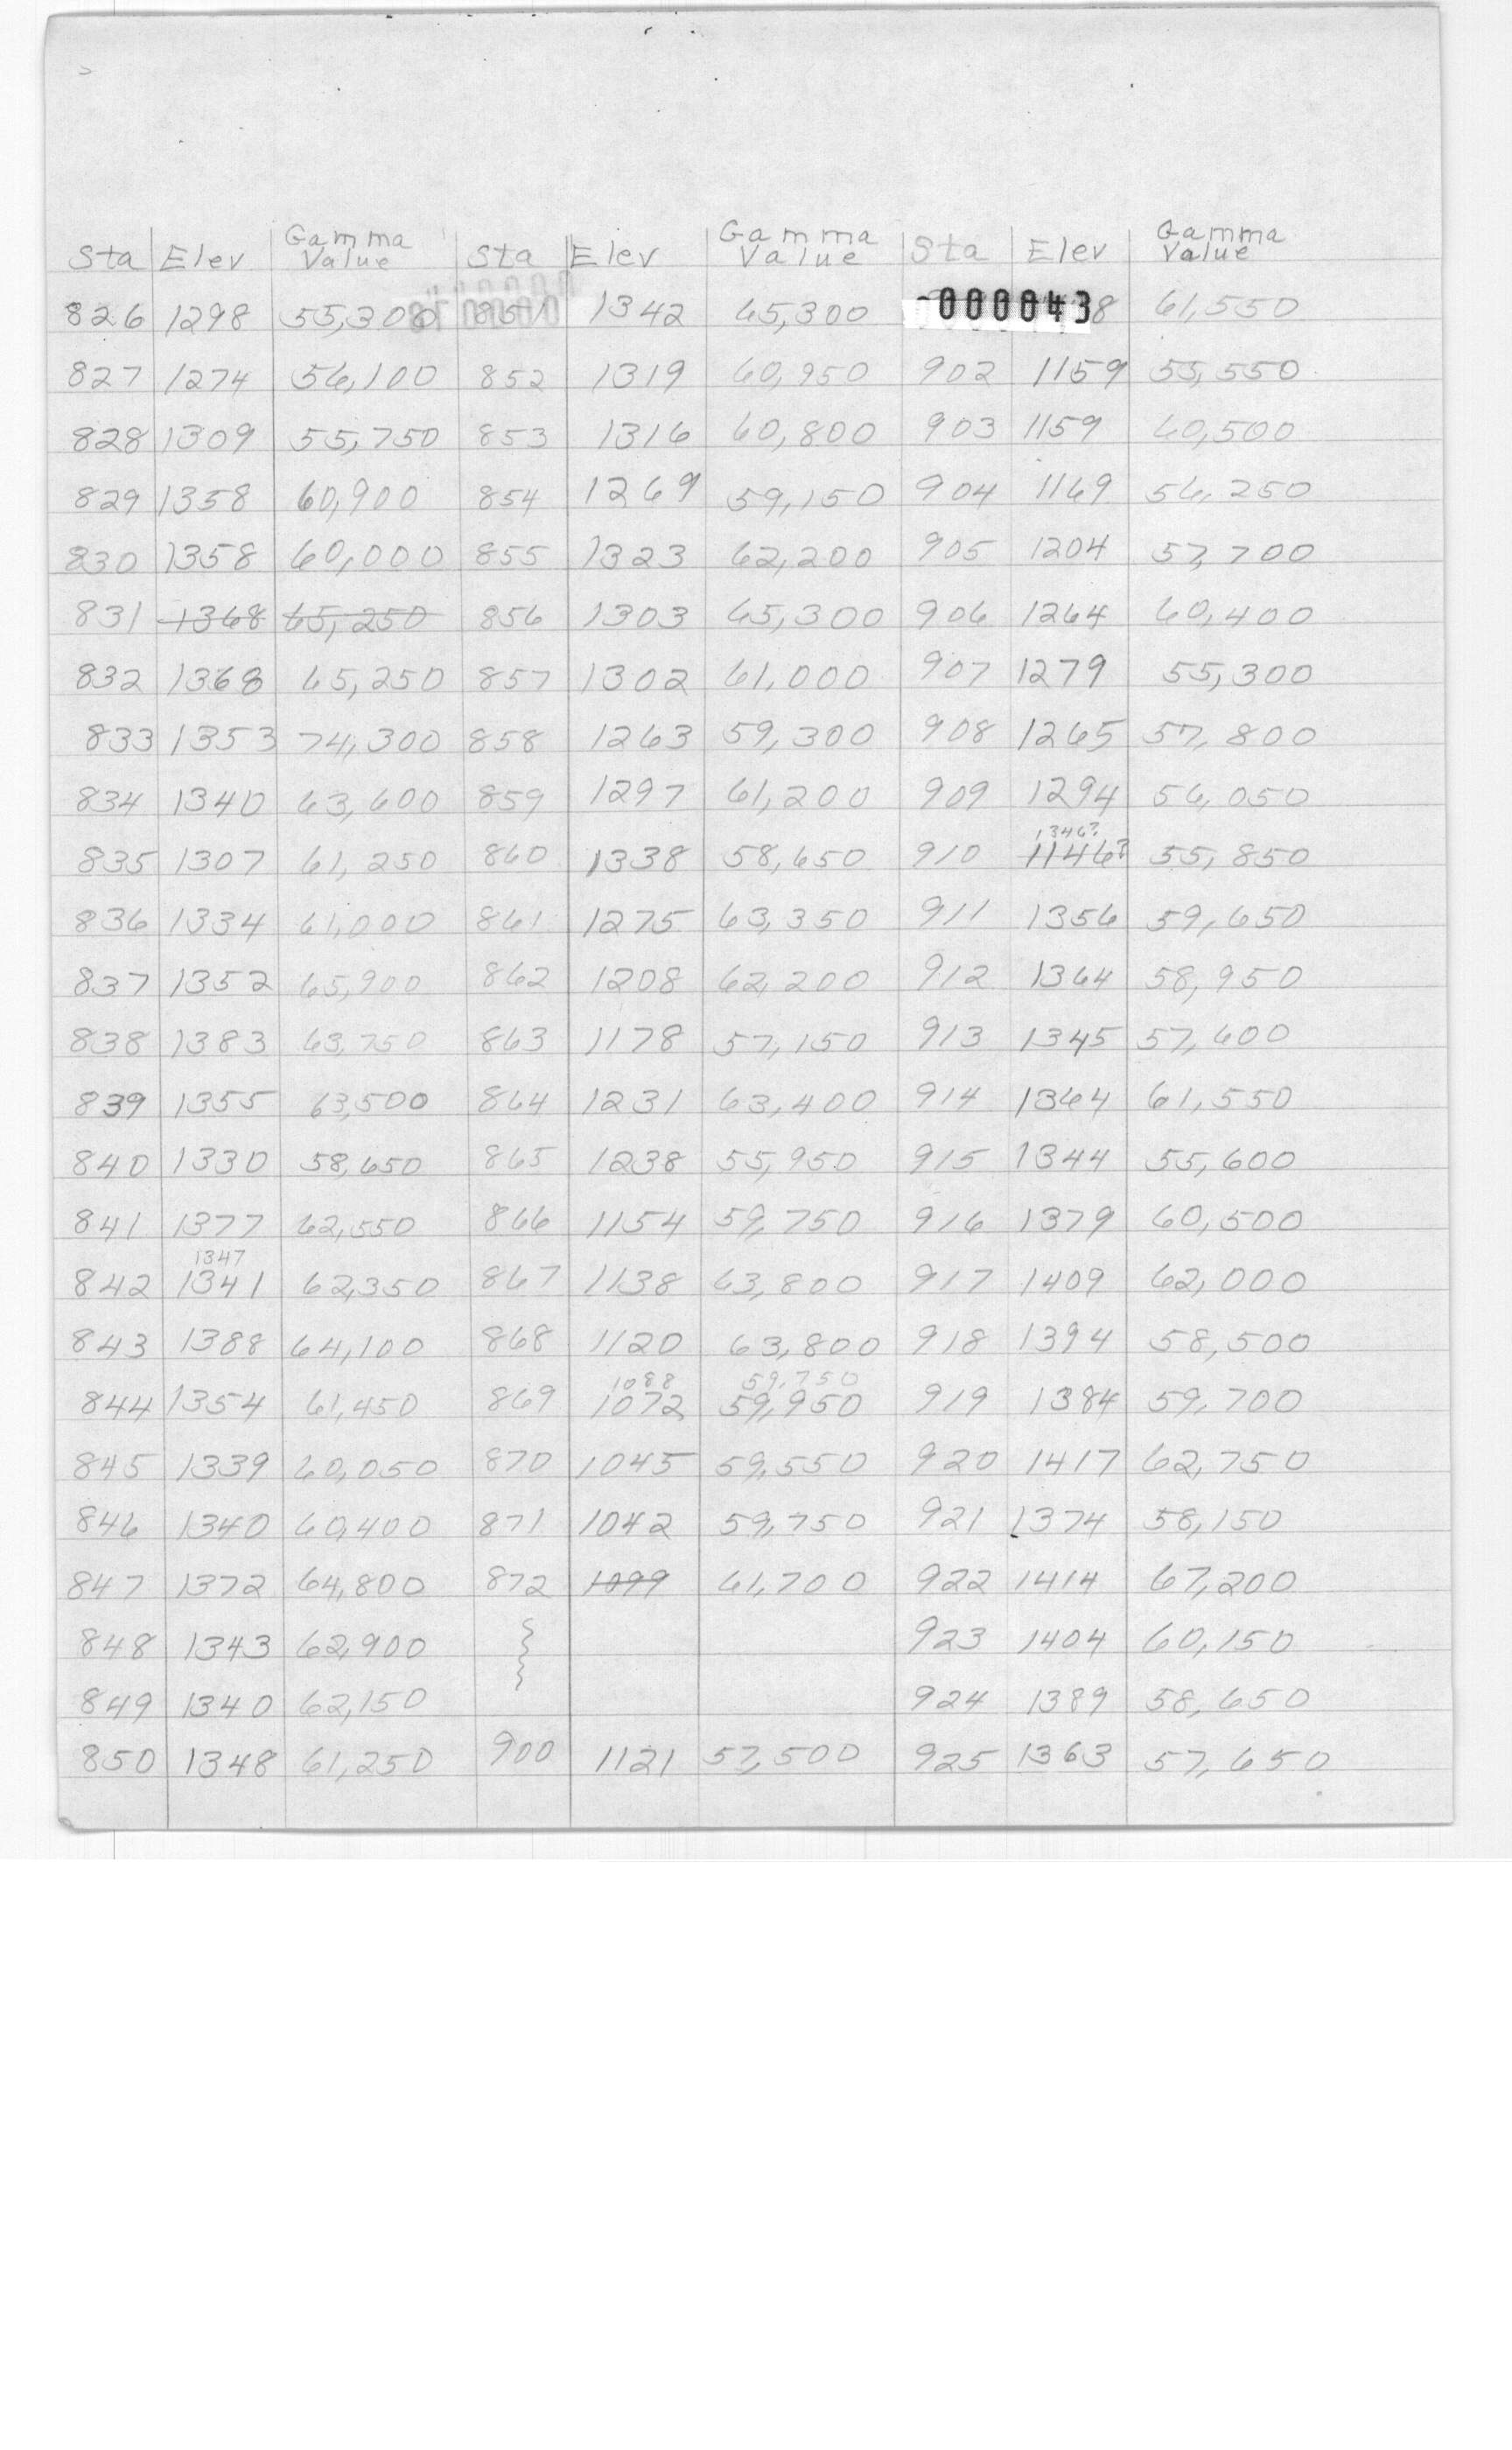 Sta Elev Gamma Value Sta Elev Gamma Value Sta Elev Gamma Value
826 1298 55,300 851 1342 65,300 000043 8 61,550
827 1274 56,100 852 1319 60,950 902 1159 55,550
828 1309 55,750 853 1316 60,800 903 1159 60,500
829 1358 60,900 854 1269 59,150 904 1169 56,250
830 1358 60,000 855 1323 62,200 905 1204 57,700
831 1368 65,250 856 1303 65,300 906 1264 60,400
832 1368 65,250 857 1302 61,000 907 1279 55,300
833 1353 74,300 858 1263 59,300 908 1265 57,800
834 1340 63,600 859 1297 61,200 909 1294 56,050
1346?
835 1307 61,250 860 1338 58,650 910 1146? 55,850
836 1334 61,000 861 1275 63,350 911 1356 59,650
837 1352 65,900 862 1208 62,200 912 1364 58,950
838 1383 63,750 863 1178 57,150 913 1345 57,600
839 1355 63,500 864 1231 63,400 914 1364 61,550
840 1330 58,650 865 1238 55,950 915 1344 55,600
841 1377 62,550 866 1154 59,750 916 1379 60,500
1347
842 1341 62,350 867 1138 63,800 917 1409 62,000
843 1388 64,100 868 1120 63,800 918 1394 58,500
1088 59,750
844 1354 61,450 869 1072 59,950 919 1384 59,700
845 1339 60,050 870 1045 59,550 920 1417 62,750
846 1340 60,400 871 1042 59,750 921 1374 58,150
847 1372 64,800 872 1099 61,700 922 1414 67,200
848 1343 62,900 923 1404 60,150
849 1340 62,150 924 1389 58,650
850 1348 61,250 900 1121 57,500 925 1363 57,650